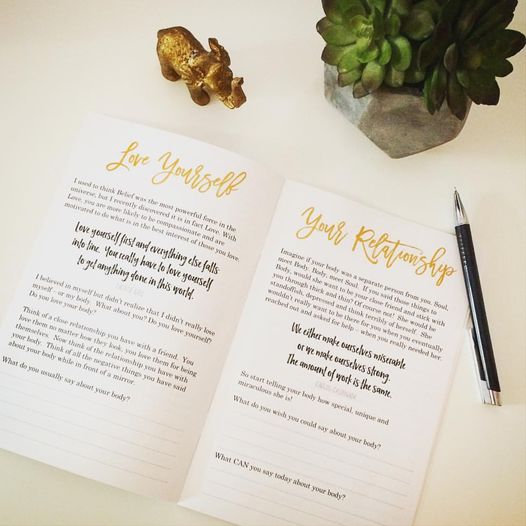 Love Yourself
I used to think Belief was the most powerful force in the
universe, but I recently discovered it is in fact Love. With
Love, you are more likely to be compassionate and are
motivated to do what is in the best interest of those you love.
Love yourself first and everything else falls
into line. You really have to love yourself
to get anything done in this world.
I believed in myself but didn't realize that I didn't really love
myself - or my body. What about you? Do you love yourself?
Do you love your body?
Think of a close relationship you have with a friend. You
love them no matter how they look, you love them for being
themselves. Now think of the relationship you have with
your body. Think of all the negative things you have said
about your body while in front of a mirror.
What do you usually say about your body?
Your Relationship
Imagine if your body was a separate person from you. Soul,
meet Body. Body, meet Soul. If you said those things to
Body, would she want to be your close friend and stick with
you through thick and thin? Of course not! She would be
standoffish, depressed and think terribly of herself. She
wouldn't really want to be there for you when you eventually
reached out and asked for help - when you really needed her.
We either make ourselves miserable
or we make ourselves strong.
The amount of work is the same.
CARLOS CASTANEDA
So start telling your body how special, unique and
miraculous she is!
What do you wish you could say about your body?
What CAN you say today about your body?